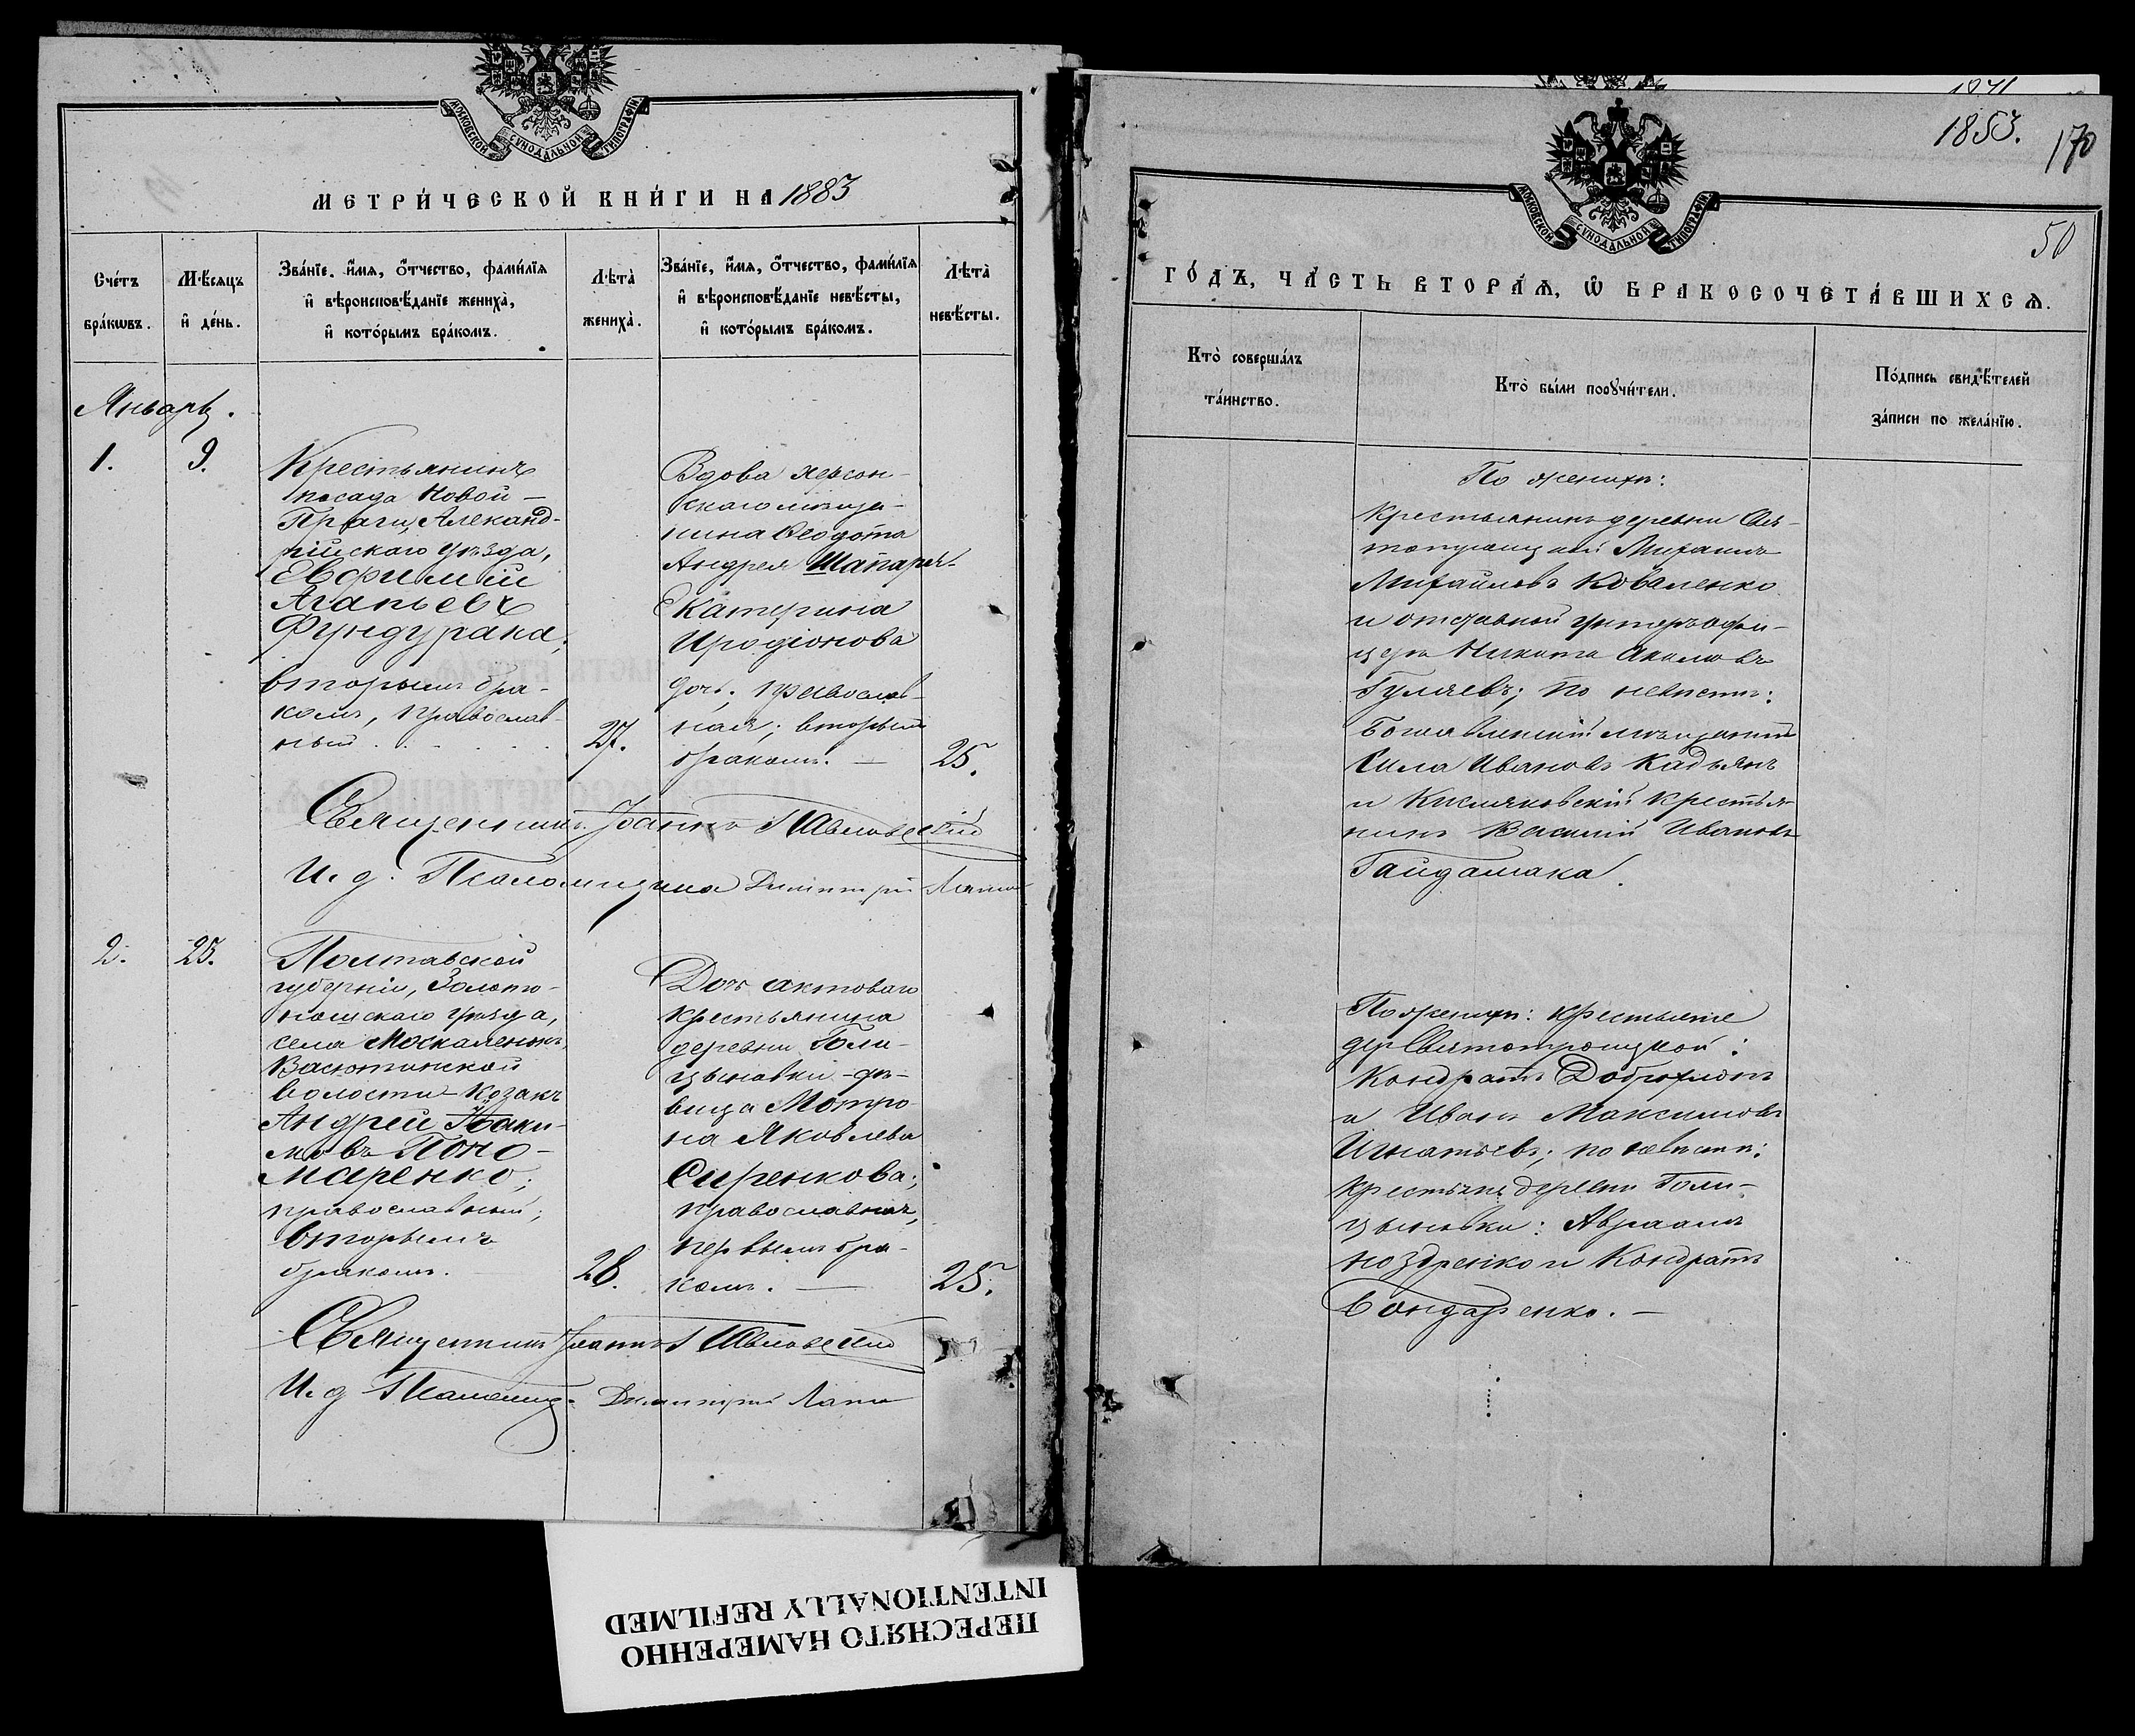 МОСКОВСКОЙ СУНОДАЛЬНОЙ ТИПОГРАФІИ
МЕТРИ́ЧЕСКОЙ КНИ́ГИ НА 1883
Сче́тъ бра́кѡвъ.
Мѣ́сяцъ и҆ де́нь.
Зва́нїе, и҆́мя, ѻ҆́тчество, фами́лїя
и҆ вѣроисповѣ́данїе жениха̀,
и҆ кото́рымъ бра́комъ.
Лѣта̀ жениха̀.
Зва́нїе, и҆́мя, ѻ҆́тчество, фами́лїя
и҆ вѣроисповѣ́данїе невѣ́сты,
и҆ кото́рымъ бра́комъ.
Лѣта̀ невѣ́сты.
Январь.
1.
9.
Крестьянинъ
посада Новой –
Праги, Александ-
рійскаго уѣзда,
Евфимій
Агапьевъ
Фундурака;
вторымъ бра-
комъ, православ-
ный . . . .
27.
Вдова херсон-
скаго мѣща-
нина Ѳеодота
Андрея
Екатерина
Иродіонова
дочь. православ-
ная; вторымъ
бракомъ. —
25.
Священникъ Іоаннъ Павловскій
И. д. Псаломщика Димитрій
2.
25.
Полтавской
губерніи, Золото-
ношскаго уѣзда,
села Москаленокъ,
Васютинской
волости козакъ
Андрей
Поно-
маренко;
православный;
вторымъ
бракомъ.
28.
Дочь актоваго
крестьянина
деревни Голи-
цыновки – дѣ-
вица Мотро-
на Яковлева
Сиренкова;
православная,
первымъ бра-
комъ. —
25.
Священникъ Іоаннъ Павловскій
И. д Псаломщ. Димитрій
1853.
170
50
МОСКОВСКОЙ СУНОДАЛЬНОЙ ТИПОГРАФІИ
ГО́ДЪ, ЧА́СТЬ ВТОРА́Я, Ѡ҆ БРАКОСОЧЕТА́ВШИХСЯ.
Кто̀ соверша́лъ
та́инство.
Кто̀ бы́ли порꙋчи́тели.
По́дпись свидѣ́телей
за́писи по жела́нїю.
По женихѣ:
крестьянинъ деревни Свя-
тотроицкой Михаилъ
Михайловъ Коваленко
и отставной унтеръ-офи-
церъ Никита
Гуляевъ; по невѣстѣ:
Богоявленскій мѣщанинъ
Сила Ивановъ Кадьянъ
и Кисляковскій крестья-
нинъ Василій Ивановъ
Гайдамака.
По женихѣ: крестьяне
дер Святотроицкой:
Кондратъ
и Иванъ Максимовъ
Игнатьевъ; по невѣстѣ:
крестьяне деревни Голи-
цыновки: Авраамъ
Ноздренко и Кондратъ
Бондаренко. —
ПЕРЕСНЯТО НАМЕРЕННО
INTENTIONALLY REFILMED